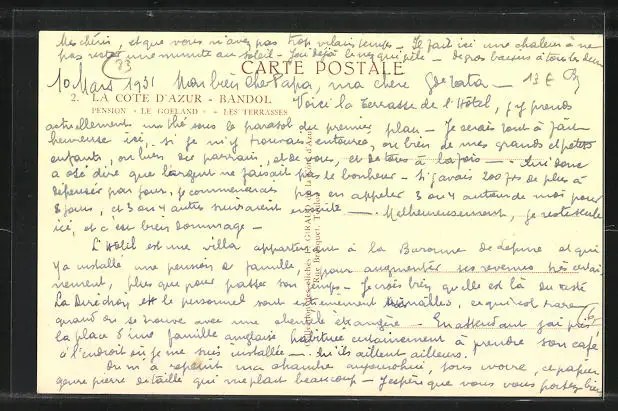 Mes chéris, et que vous n'avez pas trop vilain temps _ Il fait ici une chaleur à ne
pas rester une minute au soleil _ J'ai déjà le nez qui pèle _ De gros baisers à tous les deux
CARTE POSTALE
83
10 Mars 1931 Mon bien cher Papa, ma chère 
2. LA COTE D'AZUR - BANDOL
Voici la terrasse de l'Hôtel, j'y prends
PENSION « LE GOELAND » - LES TERRASSES
actuellement un thé sous le parasol du premier plan _ Je serais tout à fait
heureuse ici, si je m'y trouvais entourée, ou bien de mes grands et petits
enfants, ou bien du parrain, et de vous, et de tous à la fois _ Qui donc
a osé dire que l'argent ne faisait pas le bonheur _ Si j'avais 200 frs de plus à
dépenser par jour, je commencerais par en appeler 3 ou 4 autour de moi pour
8 jours, et 3 ou 4 autres suivraient ensuite _ Malheureusement, je reste seule
ici, et c'est bien dommage _
L'Hôtel est une villa appartenant à la Baronne de et qui
y a installé une pension de famille, pour augmenter ses revenus très certai-
nement, plus que pour passer son temps _ Je vois bien qu'elle est là du reste
La Direction et le personnel sont extrêmement aimables, ce qui est rare
quand on se trouve avec une clientèle étrangère _ En attendant j'ai pris
la place d'une famille anglaise habituée certainement à prendre son café
à l'endroit où je me suis installée _ Qu'ils aillent ailleurs.
On m'a repeint ma chambre aujourd'hui, tons ivoire, et papier
genre pierre de taille qui me plaît beaucoup _ J'espère que vous vous portez bien